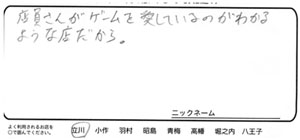 店員さんがゲームを愛しているのがわかる
ような店だから。
ニックネーム
よく利用されるお店を
○で囲んでください。
立川 小作 羽村 昭島 青梅 高幡 堀之内 八王子